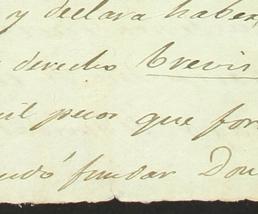 y declara haber
derecho Brevis
mil pesos que for
fundar Don